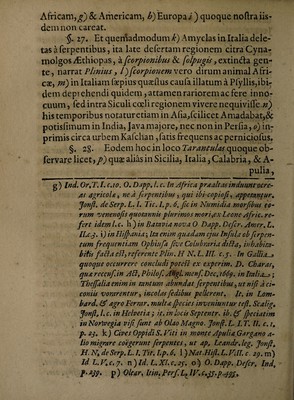 Africam, g) & Americam, h) Europa i) quoque nostra iis-
dem non careat.
§. 27. Et quemadmodum k) Amyclas in Italia dele-
tas à serpentibus, ita late desertam regionem citra Cyna-
molgos Æthiopas, à scorpionibus & solpugis, extinctâ gen-
te, narrat Plinius, l) scorpionem vero dirum animal Afri-
cæ, m) in Italiam sæpius quæstus causa illatum à Psyllis, ibi-
dem deprehendi quidem, attamen rariorem ac fere inno-
cuum, sed intra Siculi cœli regionem vivere nequivisse. n)
his temporibus notatur etiam in Asia, scilicet Amadabat, &
potissimum in India, Java majore, nec non in Persia, o) in-
primis circa urbem Kaschan, satis frequens ac perniciosus.
§. 28. Eodem hoc in loco Tarantulas quoque ob-
servare licet, p) quæ aliàs in Sicilia, Italia, Calabria, & A-
pulia,
g) Ind. Or. T. I. c. 10. O. Dapp. l. c. In Africa præaltas induunt ocre-
as agricolæ, ne à serpentibus, qui ibi copiosi, appetantur.
Jonst. de Serp. L. I. Tit. I. p. 6. sic in Numidia morsibus eo-
rum venenosis quotannis plurimos mori, ex Leone Afric. re-
fert idem l. c. h) in Batavia nova O Dapp. Descr. Amer. L.
II. c. 3. i) in Hispania; ita enim quædam ejus Insula ob serpen-
tum frequentiam Ophiusa sive Colubraria dicta, inhabita-
bilis facta est, referente Plin. H N. L. III. c. 5. in Gallia
quoque occurrere concludi poteit ex experim. D. Charas,
quæ recens. in Act. Philos. Angl. mens. Dec. 1669. in Italia;
Thessalia enim in tantum abundat serpentibus, ut nisi à ci-
coniis vorarentur, incolas sedibus pellerent. It. in Lom-
bard. & agro Ferrar. multæ species inveniuntur test. Scalig.
Jonst. l. c. in Helvetia; it. in locis Septentr. ib. & speciatim
in Norwegia visi sunt ab Olao Magno. Jonst. L. I. T. II. c. 1.
p. 25. k) Cives Oppidi S. Viti in monte Apuliæ Gargano a-
lio migrare coëgerunt serpentes, ut ap. Leandr. leg. Jonst.
H. N. de Serp. L. I. Tit. I. p. 6. l) Nat. Hist. L. VIII. c. 29. m)
Id. L. V. c. 7. n) Id. L. XI. c. 25. o) O. Dapp. Descr. Ind.
p. 239. p) Olear. Itin. Pers. L. IV. c. 35. p. 495.